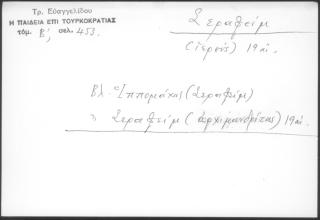 Τρ. Εὐαγγελίδου
Η ΠΑΙΔΕΙΑ ΕΠΙ ΤΟΥΡΚΟΚΡΑΤΙΑΣ
τόμ. Β', σελ. 453.
Σεραφείμ
(ἱερεύς) 19 αἰ.
Βλ. Ἱππομάχος (Σεραφείμ)
" Σεραφείμ (ἀρχιμανδρίτης) 19 αἰ.